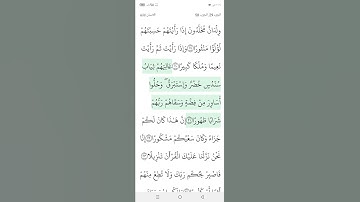 وِلْدَانٌ مُّخَلَّدُونَ إِذَا رَأَيْتَهُمْ حَسِبْتَهُمْ
لُؤْلُؤًا مَّنثُورًا وَإِذَا رَأَيْتَ ثَمَّ رَأَيْتَ
نَعِيمًا وَمُلْكًا كَبِيرًا عَالِيَهُمْ ثِيَابُ
سُندُسٍ خُضْرٌ وَإِسْتَبْرَقٌ وَحُلُّوا
أَسَاوِرَ مِن فِضَّةٍ وَسَقَاهُمْ رَبُّهُمْ
شَرَابًا طَهُورًا إِنَّ هَٰذَا كَانَ لَكُمْ
جَزَاءً وَكَانَ سَعْيُكُم مَّشْكُورًا إِنَّا
نَحْنُ نَزَّلْنَا عَلَيْكَ الْقُرْآنَ تَنزِيلًا
فَاصْبِرْ لِحُكْمِ رَبِّكَ وَلَا تُطِعْ مِنْهُمْ